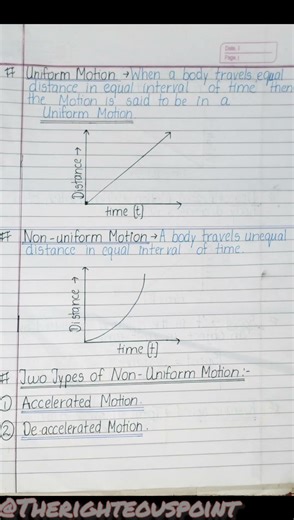 Date: / /
Page:
# Uniform Motion → When a body travels equal
distance in equal interval of time then
the Motion is said to be in a
Uniform Motion.
Distance →
time (t)
# Non-uniform Motion → A body travels unequal
distance in equal interval of time.
Distance →
time (t)
# Two Types of Non-Uniform Motion:-
① Accelerated Motion.
② De-accelerated Motion.
@Therighteouspoint